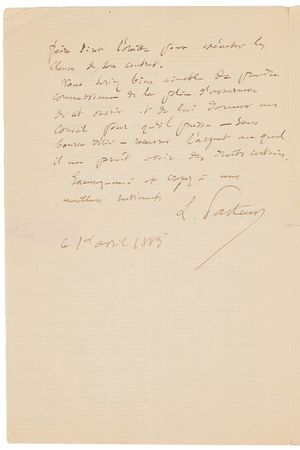 faire tout l'érudier pour exécuter les
clauses de son contrat.
Vous seriez bien aimable de prendre
connaissance de la
de cet ouvrier et de lui donner un
conseil pour qu'il puisse — sans
bourse délier — recouvrer l'argent auquel
il me paraît avoir des droits certains.
et croyez à mes
meilleurs sentiments
L. Pasteur
ce 1er avril 1885